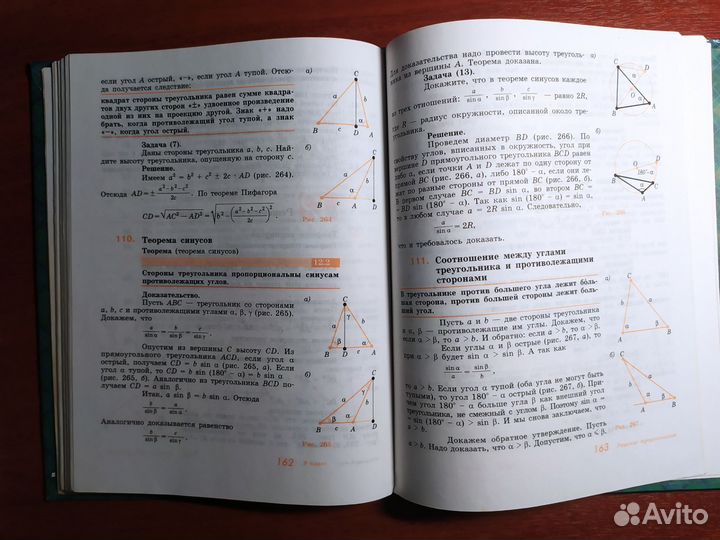 если угол A острый, «−», если угол A тупой. Отсю-
да получается следствие:
квадрат стороны треугольника равен сумме квадра-
тов двух других сторон «±» удвоенное произведение
одной из них на проекцию другой. Знак «+» надо
брать, когда противолежащий угол тупой, а знак
«−», когда угол острый.
Задача (7).
Даны стороны треугольника a, b, c. Най-
дите высоту треугольника, опущенную на сторону c.
Решение.
Имеем a² = b² + c² ± 2c · AD (рис. 264).
Отсюда AD=± (a²−b²−c²)/2c. По теореме Пифагора
CD=√(AC²−AD²)=√(b²−((a²−b²−c²)/2c)²).
а)
C
a
b
B
c
D
A
б)
C
a
b
B
c
A
D
Рис. 264
110. Теорема синусов
Теорема (теорема синусов)
12.2
Стороны треугольника пропорциональны синусам
противолежащих углов.
Доказательство.
Пусть ABC — треугольник со сторонами
a, b, c и противолежащими углами α, β, γ (рис. 265).
Докажем, что
a/sin α = b/sin β = c/sin γ.
Опустим из вершины C высоту CD. Из
прямоугольного треугольника ACD, если угол α
острый, получаем CD = b sin α (рис. 265, а). Если
угол α тупой, то CD = b sin (180° − α) = b sin α
(рис. 265, б). Аналогично из треугольника BCD по-
лучаем CD = a sin β.
Итак, a sin β = b sin α. Отсюда
a/sin α = b/sin β.
Аналогично доказывается равенство
b/sin β = c/sin γ.
а)
C
γ
a
b
β
α
B
D
A
б)
C
γ
a
b
β
α
B
c
A
D
Рис. 265
162
9 класс
Для доказательства надо провести высоту треуголь-
ника из вершины A. Теорема доказана.
Задача (13).
Докажите, что в теореме синусов каждое
из трех отношений: a/sin α, b/sin β, c/sin γ — равно 2R,
где R — радиус окружности, описанной около
треугольника.
Решение.
Проведем диаметр BD (рис. 266). По
свойству углов, вписанных в окружность, угол при
вершине D прямоугольного треугольника BCD равен
либо α, если точки A и D лежат по одну сторону от
прямой BC (рис. 266, а), либо 180° − α, если они ле-
жат по разные стороны от прямой BC (рис. 266, б).
В первом случае BC = BD sin α, во втором BC =
= BD sin (180° − α). Так как sin (180° − α) = sin α,
то в любом случае a = 2R sin α. Следовательно,
a/sin α = 2R,
что и требовалось доказать.
а)
C
D
α
O
α
B
A
б)
D
O
180°−α
C
α
B
A
Рис. 266
111. Соотношение между углами
треугольника и противолежащими
сторонами
В треугольнике против большего угла лежит боль-
шая сторона, против большей стороны лежит боль-
ший угол.
Пусть a и b — две стороны треугольника
и α, β — противолежащие им углы. Докажем, что
если α > β, то a > b. И обратно: если a > b, то α > β.
Если углы α и β острые (рис. 267, а), то
при α > β будет sin α > sin β. А так как
a/sin α = b/sin β,
то a > b. Если угол α тупой (оба угла не могут быть
тупыми), то угол 180° − α острый (рис. 267, б). При-
чем угол 180° − α больше угла β как внешний угол
треугольника, не смежный с углом β. Поэтому sin α =
= sin (180° − α) > sin β. И мы снова заключаем, что
a > b.
Докажем обратное утверждение. Пусть
a > b. Надо доказать, что α > β. Допустим, что α ⩽ β.
а)
C
a
b
β
α
B
A
б)
C
a
b
β
α
B
A
Рис. 267
163
Avito